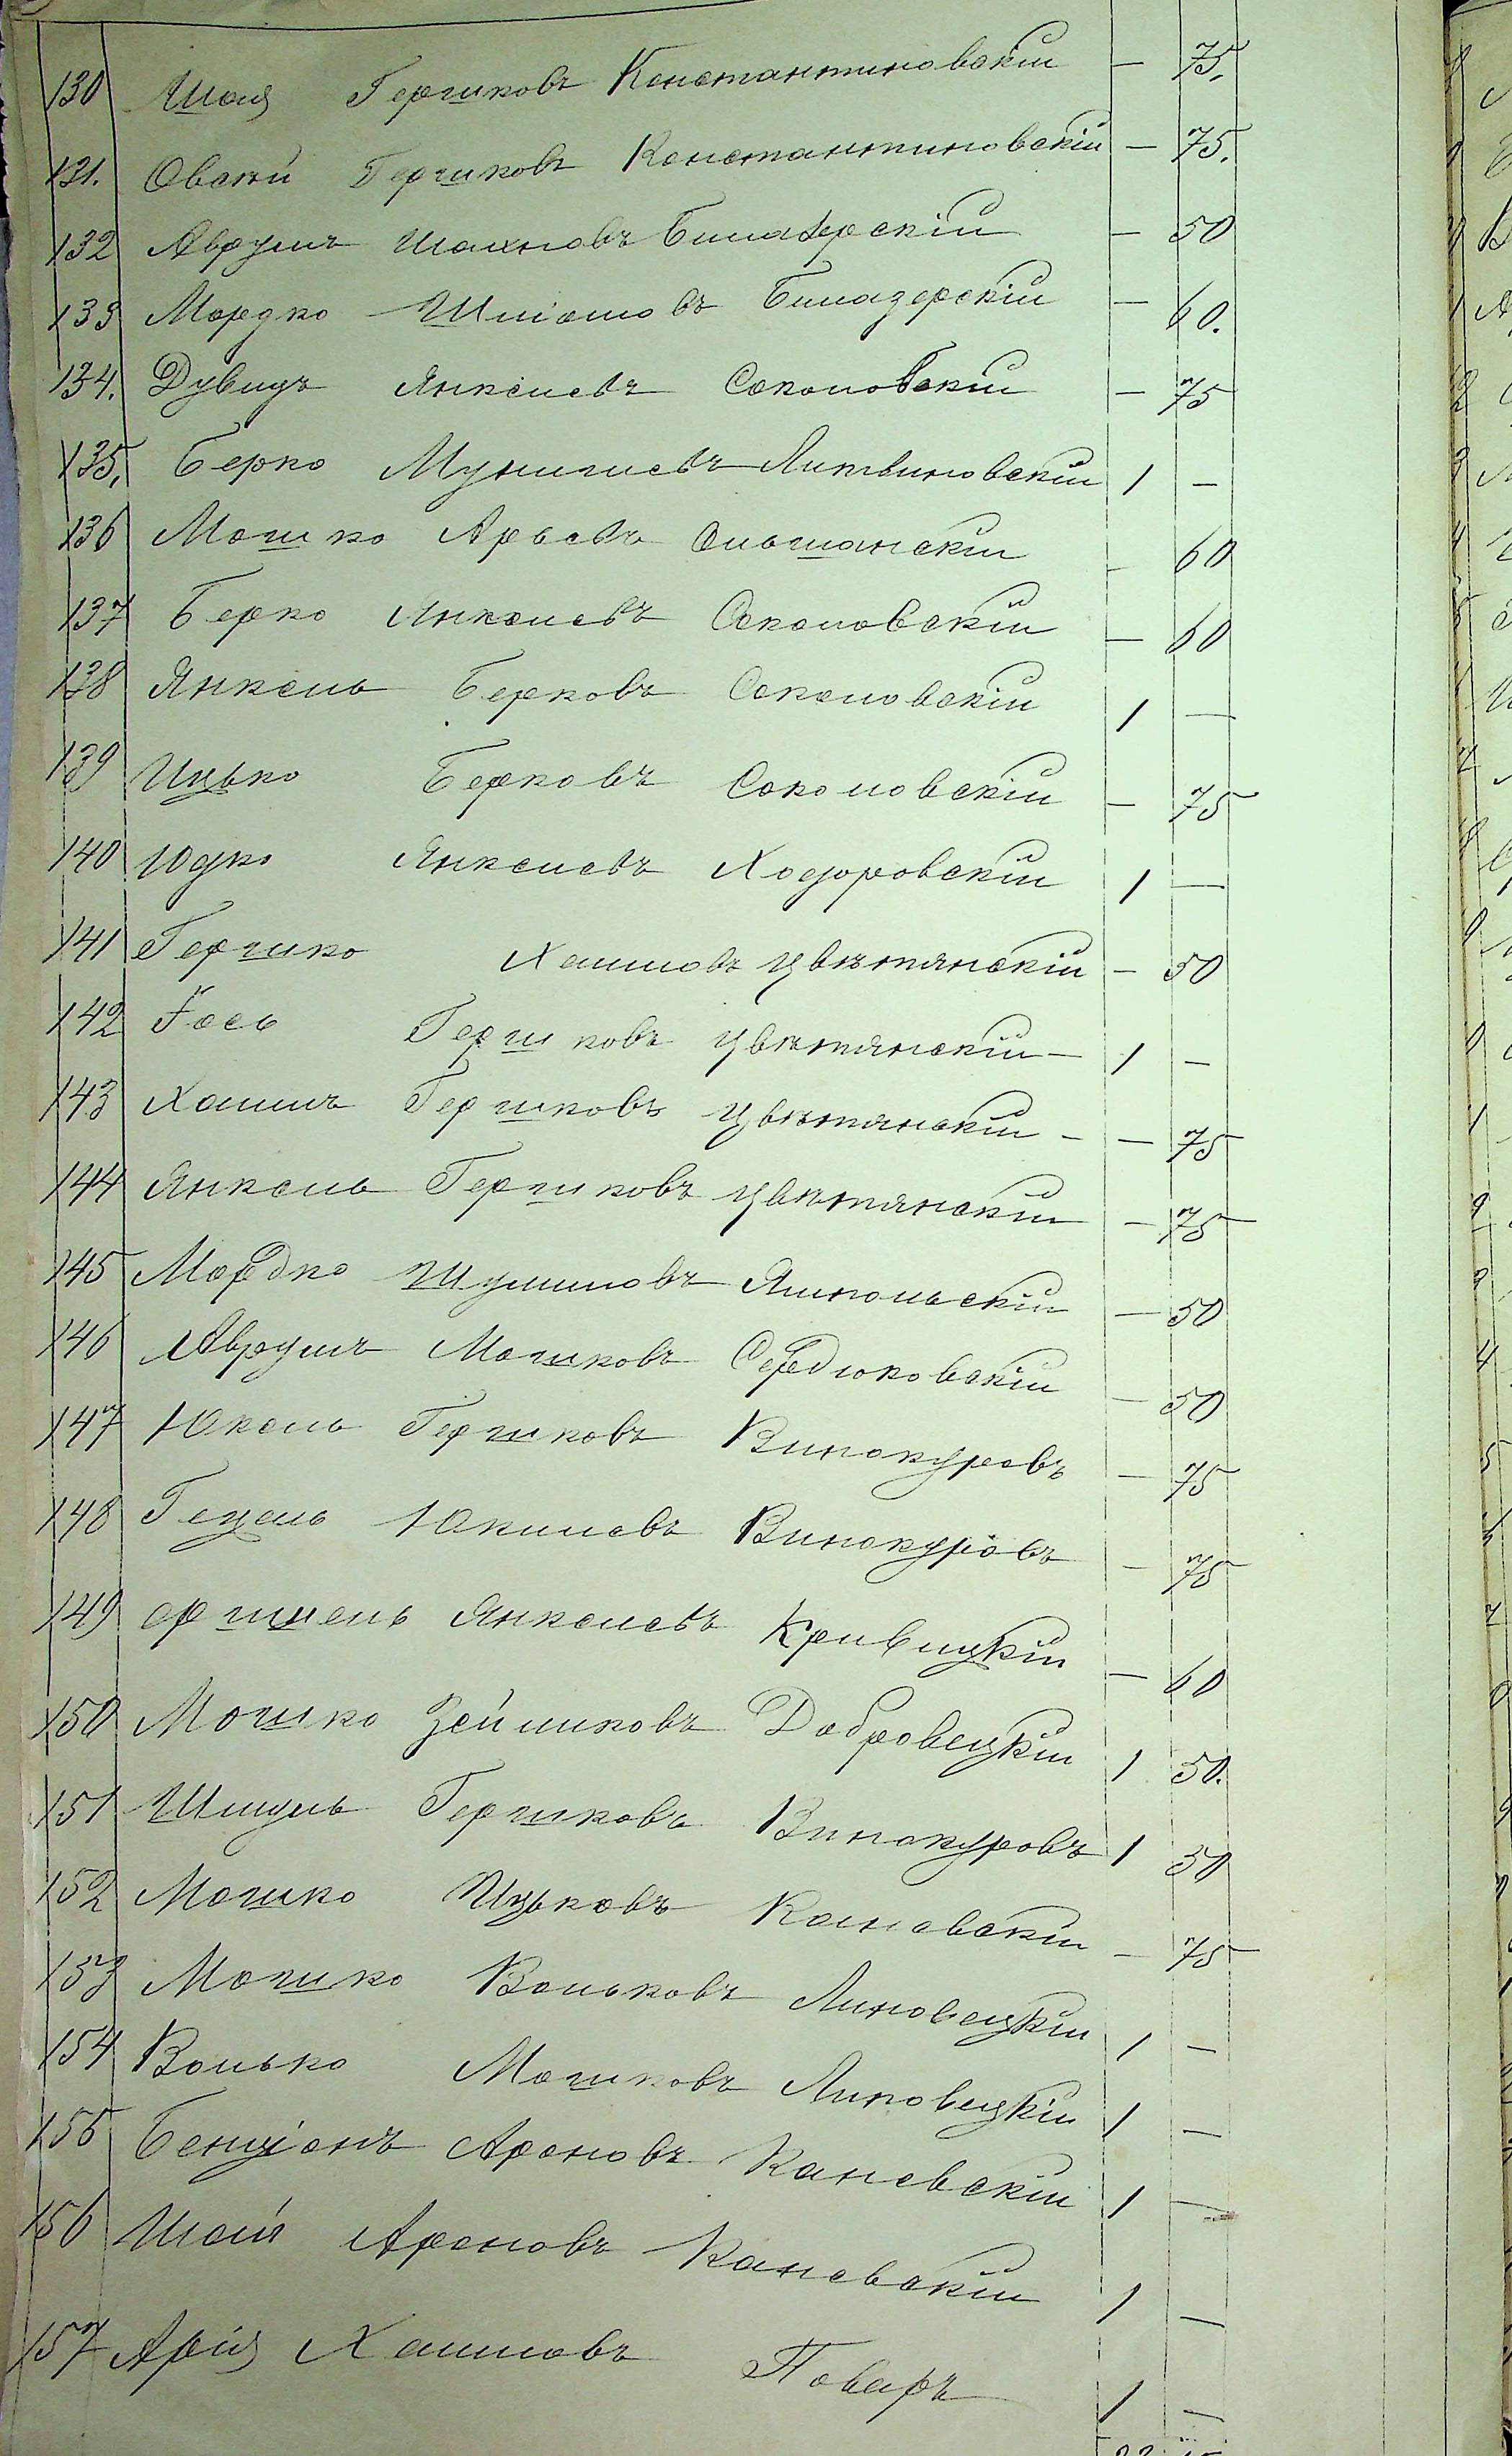 130 Шая Гершковъ Константиновскій — 75.
131. Овсей Гершковъ Константиновскій — 75.
132 Аврумъ Шахновъ Билазерскій — 50
133 Мордко Шліомовъ Билазерскій — 60.
134. Дувидъ Янкелевъ Соколовскій — 75
135. Берко Мунишевъ Литвиновскій 1 —
136 Мошко Арьевъ Ольшанскій — 60
137 Берко Янкелевъ Соколовскій — 60
138 Янкель Берковъ Соколовскій 1 —
139 Ицько Берковъ Соколовскій — 75
140 Юдко Янкелевъ Ходоровскій 1 —
141 Гершко Хаимовъ Цвѣтянскій — 50
142 Іось Гершковъ Цвѣтянскій — 1 —
143 Хаимъ Гершковъ Цвѣтянскій — — 75
144 Янкель Гершковъ Цвѣтянскій — 75
145 Мордко Шулимовъ Ямпольскій — 50
146 Аврумъ Мошковъ Середюковскій — 50
147 Юкель Гершковъ Винокуровъ — 75
148 Гецель Юкилевъ Винокуровъ — 75
149 Янкелевъ Кривицкій — 60
150 Мошко Зейликовъ Добровецкій 1 50.
151 Шмуль Гершковъ Винокуровъ 1 50
152 Мошко Ицьковъ Каневскій — 75
153 Мошко Вольковъ Липовецкій 1 —
154 Волько Мошковъ Липовецкій 1 —
155 Бенціонъ Ароновъ Каневскій 1 —
156 Ароновъ Каневскій 1 —
157 Арія Хаимовъ Поваръ 1 —